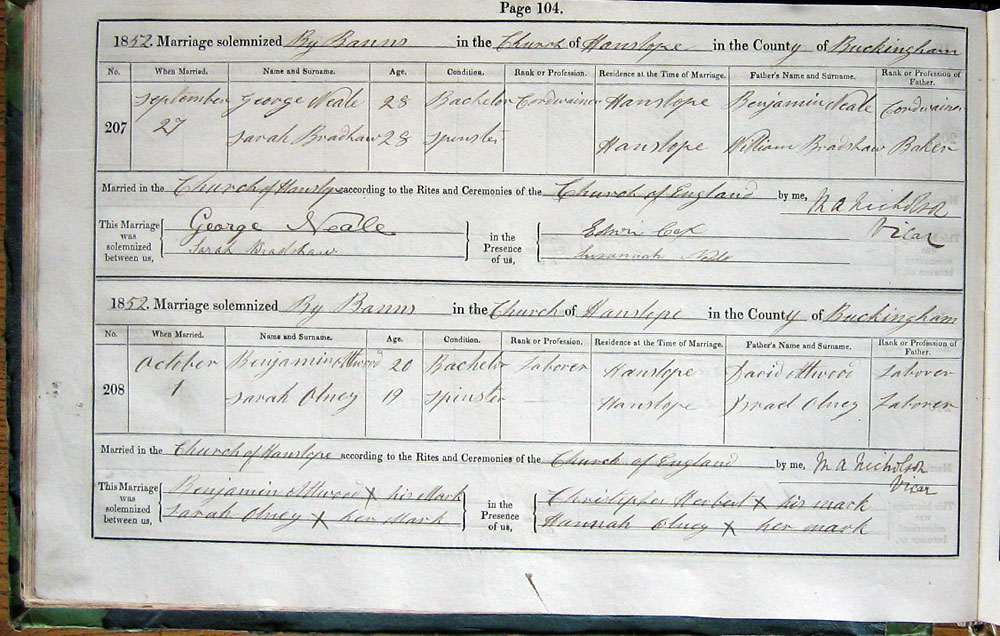 Page 104.
1852. Marriage solemnized By Banns in the Church of Hanslope in the County of Buckingham
No. When Married. Name and Surname. Age. Condition. Rank or Profession. Residence at the Time of Marriage. Father's Name and Surname. Rank or Profession of Father.
207 September 27 George Neale 28 Bachelor Cordwainer Hanslope Benjamin Neale Cordwainer
Sarah Bradshaw 28 Spinster Hanslope William Bradshaw Baker
Married in the Church of Hanslope according to the Rites and Ceremonies of the Church of England by me, M A Nicholson
Vicar
This Marriage was solemnized between us,
George Neale
Sarah Bradshaw
in the Presence of us,
Edwin Cox
Susannah Neale
1852. Marriage solemnized By Banns in the Church of Hanslope in the County of Buckingham
No. When Married. Name and Surname. Age. Condition. Rank or Profession. Residence at the Time of Marriage. Father's Name and Surname. Rank or Profession of Father.
208 October 1 Benjamin Attwood 20 Bachelor Laborer Hanslope David Attwood Laborer
Sarah Olney 19 Spinster Hanslope Israel Olney Laborer
Married in the Church of Hanslope according to the Rites and Ceremonies of the Church of England by me, M A Nicholson
Vicar
This Marriage was solemnized between us,
Benjamin Attwood X his Mark
Sarah Olney X her Mark
in the Presence of us,
Christopher Herbert X his mark
Hannah Olney X her mark